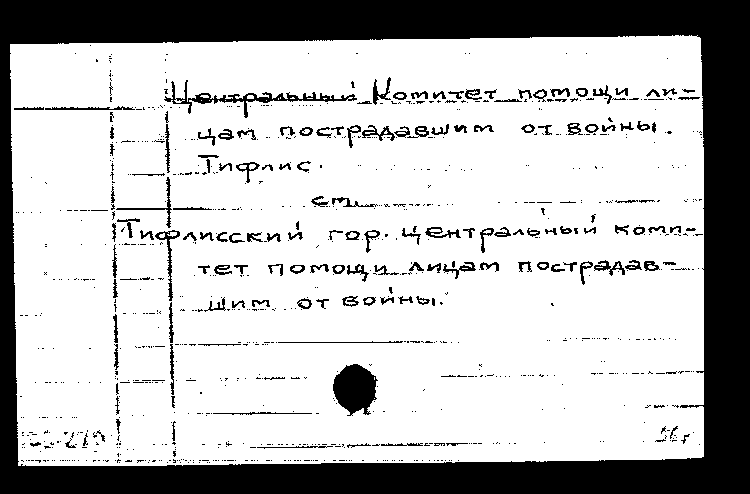 Центральный Комитет помощи ли-
цам пострадавшим от войны.
Тифлис.
см.
Тифлисский гор. центральный коми-
тет помощи лицам пострадав-
шим от войны.
56г